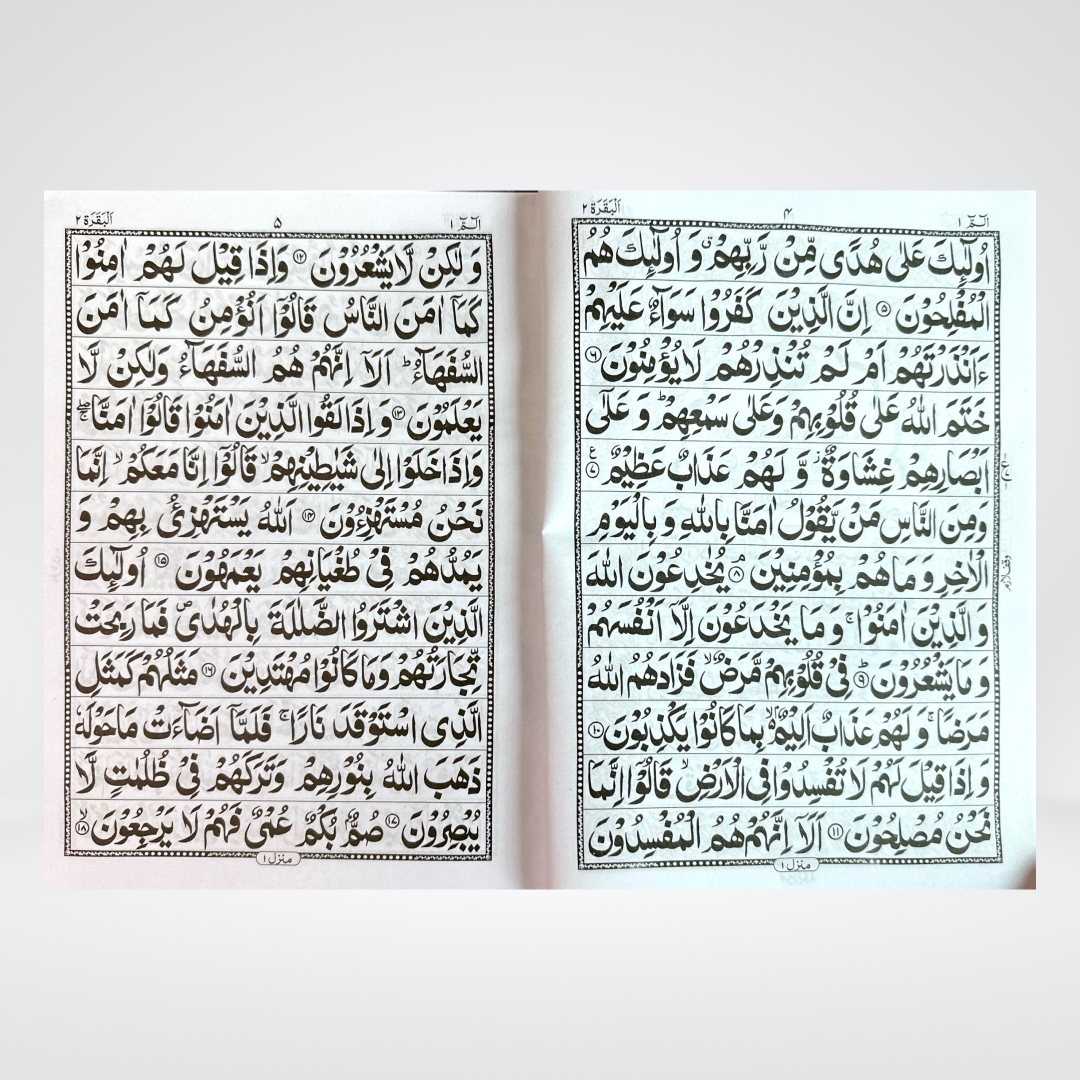 الٓمّٓ ١
۴
اَلْبَقَرَة ٢
اُولٰٓئِكَ عَلٰى هُدًى مِّنْ رَّبِّهِمْ ۗ وَ اُولٰٓئِكَ هُمُ
الْمُفْلِحُوْنَ ۝۵ اِنَّ الَّذِيْنَ كَفَرُوْا سَوَآءٌ عَلَيْهِمْ
ءَاَنْذَرْتَهُمْ اَمْ لَمْ تُنْذِرْهُمْ لَا يُؤْمِنُوْنَ ۝۶
خَتَمَ اللّٰهُ عَلٰى قُلُوْبِهِمْ وَعَلٰى سَمْعِهِمْ ؕ وَ عَلٰٓى
اَبْصَارِهِمْ غِشَاوَةٌ ؗ وَّ لَهُمْ عَذَابٌ عَظِيْمٌ ۝۷ ع
وَمِنَ النَّاسِ مَنْ يَّقُوْلُ اٰمَنَّا بِاللّٰهِ وَ بِالْيَوْمِ
الْاٰخِرِ وَ مَا هُمْ بِمُؤْمِنِيْنَ ۝۸ۘ يُخٰدِعُوْنَ اللّٰهَ
وَ الَّذِيْنَ اٰمَنُوْا ۚ وَ مَا يَخْدَعُوْنَ اِلَّاۤ اَنْفُسَهُمْ
وَ مَا يَشْعُرُوْنَ ۝۹ؕ فِيْ قُلُوْبِهِمْ مَّرَضٌ ۙ فَزَادَهُمُ اللّٰهُ
مَرَضًا ۚ وَ لَهُمْ عَذَابٌ اَلِيْمٌۢ ۙ بِمَا كَانُوْا يَكْذِبُوْنَ ۝۱۰
وَ اِذَا قِيْلَ لَهُمْ لَا تُفْسِدُوْا فِي الْاَرْضِ ۙ قَالُوْۤا اِنَّمَا
نَحْنُ مُصْلِحُوْنَ ۝۱۱ اَلَاۤ اِنَّهُمْ هُمُ الْمُفْسِدُوْنَ
وقف لازم
منزل ١
الٓمّٓ ١
۵
اَلْبَقَرَة ٢
وَ لٰكِنْ لَّا يَشْعُرُوْنَ ۝۱۲ وَاِذَا قِيْلَ لَهُمْ اٰمِنُوْا
كَمَاۤ اٰمَنَ النَّاسُ قَالُوْۤا اَنُؤْمِنُ كَمَاۤ اٰمَنَ
السُّفَهَآءُ ؕ اَلَاۤ اِنَّهُمْ هُمُ السُّفَهَآءُ وَلٰكِنْ لَّا
يَعْلَمُوْنَ ۝۱۳ وَ اِذَا لَقُوا الَّذِيْنَ اٰمَنُوْا قَالُوْۤا اٰمَنَّا ۖۚ
وَاِذَا خَلَوْا اِلٰى شَيٰطِيْنِهِمْ ۙ قَالُوْۤا اِنَّا مَعَكُمْ ۙ اِنَّمَا
نَحْنُ مُسْتَهْزِءُوْنَ ۝۱۴ اَللّٰهُ يَسْتَهْزِئُ بِهِمْ وَ
يَمُدُّهُمْ فِيْ طُغْيَانِهِمْ يَعْمَهُوْنَ ۝۱۵ اُولٰٓئِكَ
الَّذِيْنَ اشْتَرَوُا الضَّلٰلَةَ بِالْهُدٰى ۪ فَمَا رَبِحَتْ
تِّجَارَتُهُمْ وَمَا كَانُوْا مُهْتَدِيْنَ ۝۱۶ مَثَلُهُمْ كَمَثَلِ
الَّذِى اسْتَوْقَدَ نَارًا ۚ فَلَمَّاۤ اَضَآءَتْ مَا حَوْلَهٗ
ذَهَبَ اللّٰهُ بِنُوْرِهِمْ وَتَرَكَهُمْ فِيْ ظُلُمٰتٍ لَّا
يُبْصِرُوْنَ ۝۱۷ صُمٌّۢ بُكْمٌ عُمْيٌ فَهُمْ لَا يَرْجِعُوْنَ ۝۱۸ۙ
منزل ١